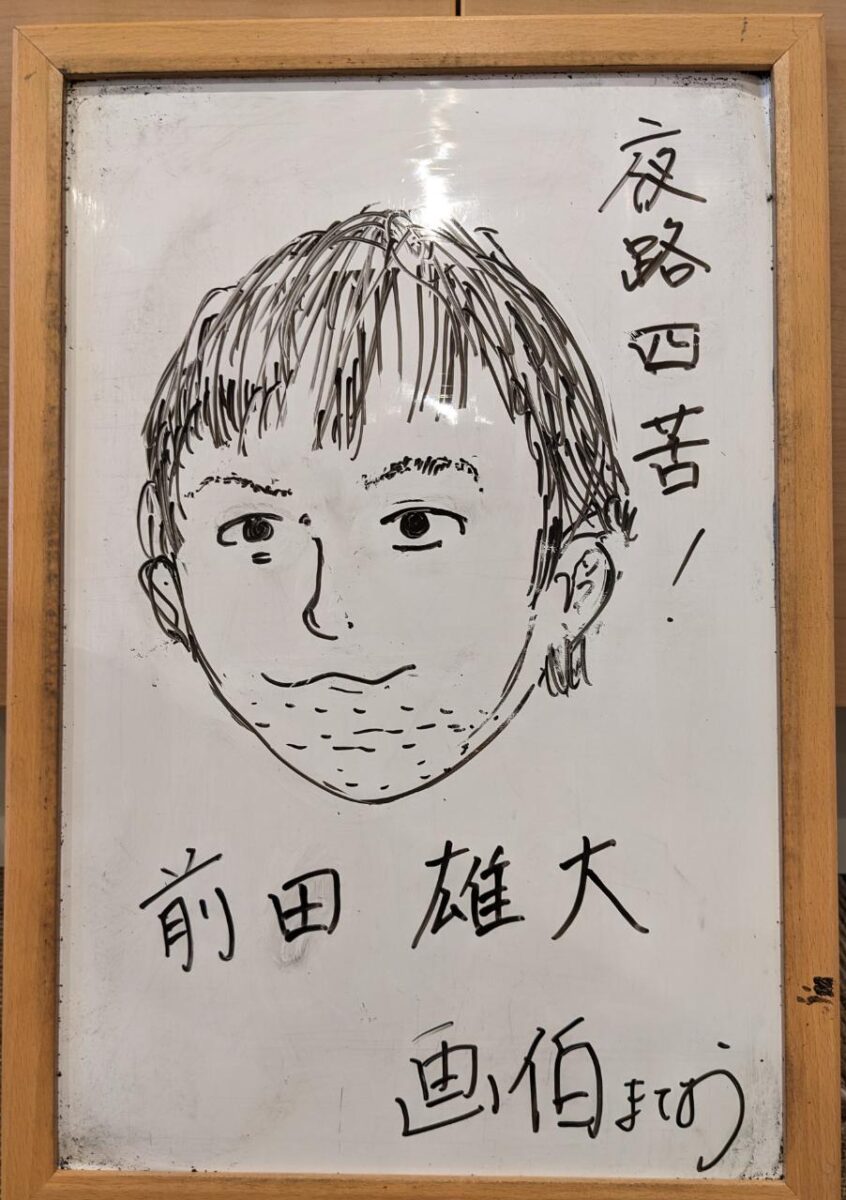 夜路四苦!
前田 雄大
画伯まてお